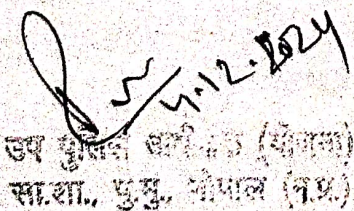 4.12.2024
उप पुलिस (योजना)
सा.शा., पु.मु., भोपाल (म.प्र.)